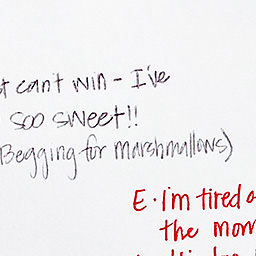 can't win - I've
soo sweet!!
Begging for marshmallows)
E. I'm tired
the mom